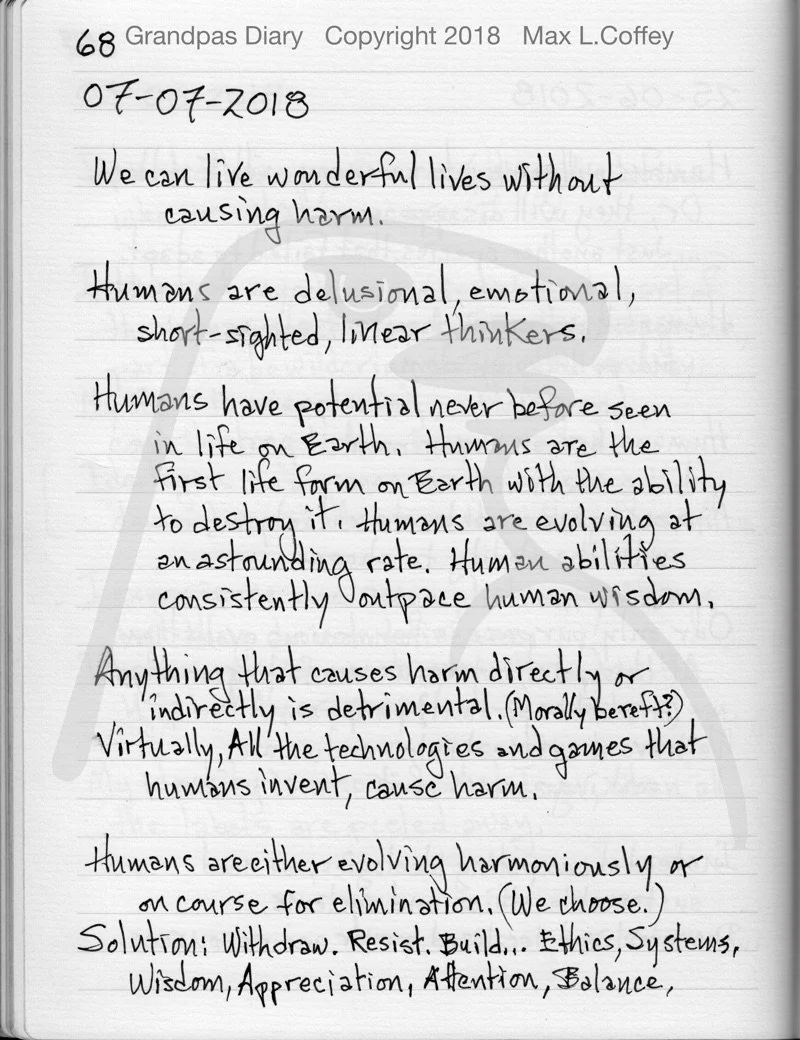 68 Grandpas Diary Copyright 2018 Max L.Coffey
07-07-2018
We can live wonderful lives without
causing harm.
Humans are delusional, emotional,
short-sighted, linear thinkers.
Humans have potential never before seen
in life on Earth. Humans are the
first life form on Earth with the ability
to destroy it. Humans are evolving at
an astounding rate. Human abilities
consistently outpace human wisdom.
Anything that causes harm directly or
indirectly is detrimental. (Morally bereft?)
Virtually, All the technologies and games that
humans invent, cause harm.
Humans are either evolving harmoniously or
on course for elimination. (We choose.)
Solution: Withdraw. Resist. Build... Ethics, Systems,
Wisdom, Appreciation, Attention, Balance,